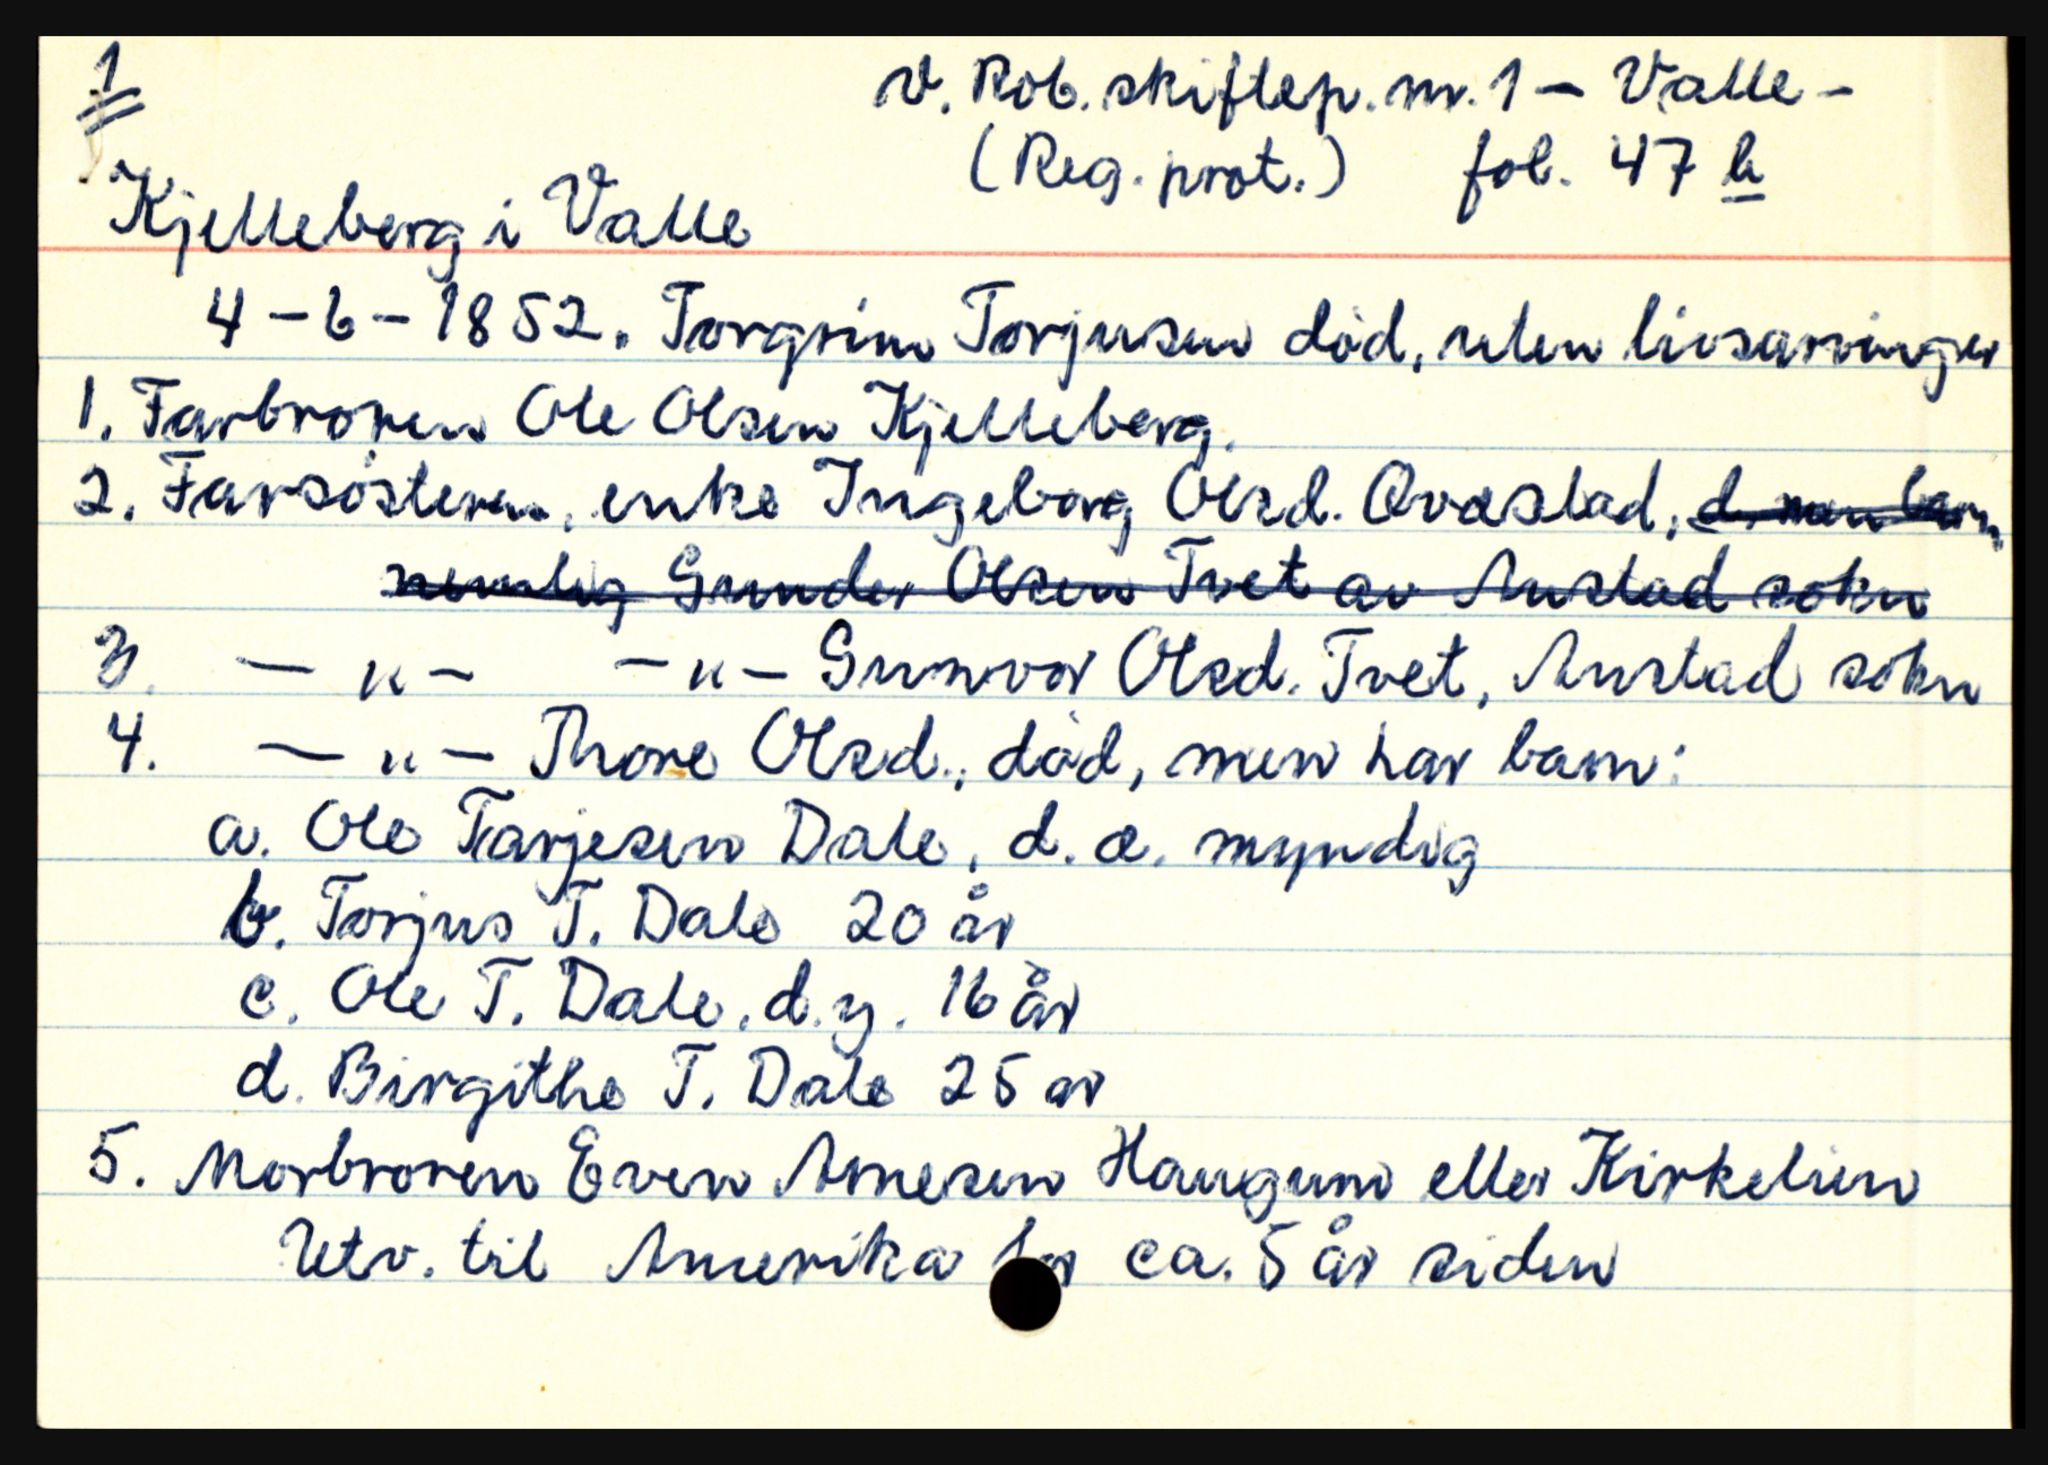 1
V. Rob. skiftep. nr. 1 – Valle –
(Reg. prot.) fol. 47 b
Kjelleberg i Valle
4 – 6 – 1852. Torgrim Torjusen död, uten livsarvinger
1. Farbroren Ole Olsen Kjelleberg.
2. Farsösteren, enke Ingeborg Olsd. Qvastad, d. men barn,
nemlig Gunder Olsen Tvet av Austad sokn
3. – " – – " – Gunvor Olsd. Tvet, Austad sokn
4. – " – Thore Olsd., död, men har barn:
a. Ole Tarjesen Dale, d. e. myndig
b. Torjus T. Dale 20 år
c. Ole T. Dale, d. y. 16 år
d. Birgithe T. Dale 25 år
5. Morbroren Even Arnesen Haugum eller Kirkelien
Utv. til Amerika for ca. 5 år siden